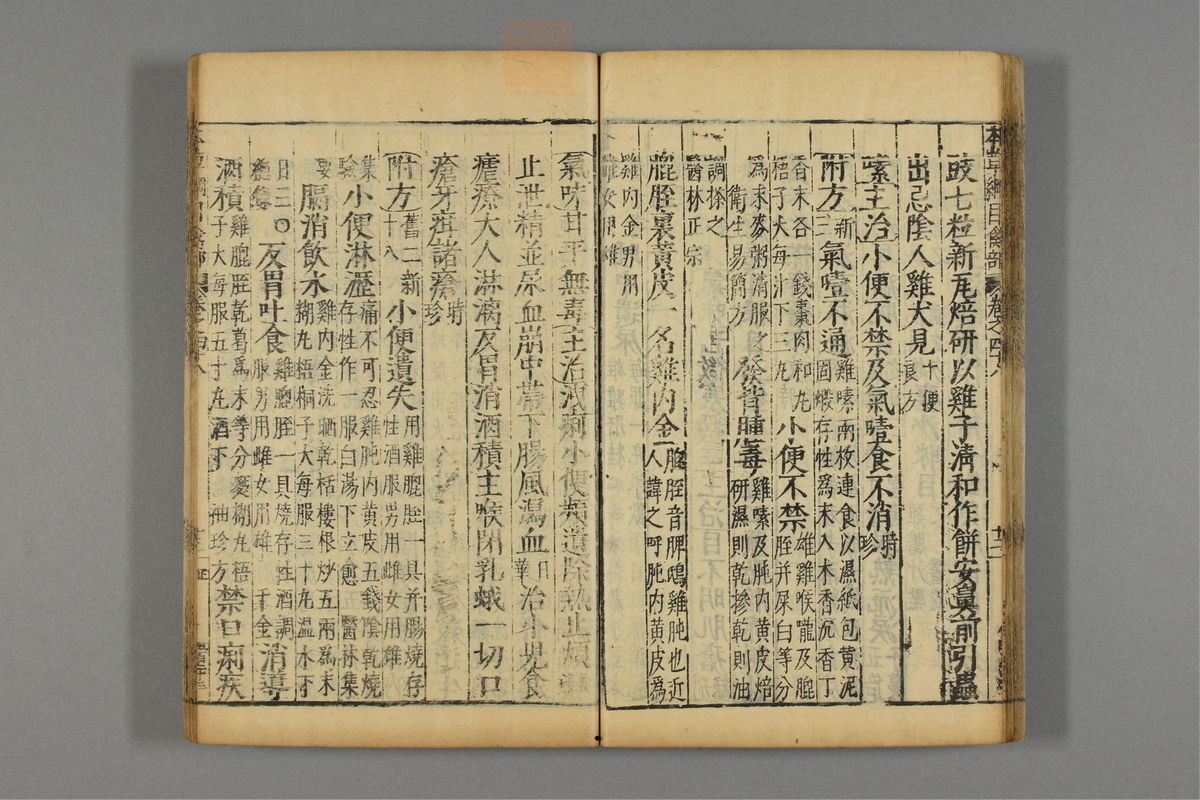 豉七粒新瓦焙研以雞子清和作餅安鼻前引蟲
出忌陰人雞犬見十便良方
嗉主治小便不禁及氣噎食不消時珍
附方新三氣噎不通雞嗉兩枚連食以濕紙包黄泥固煅存性為末入木香沉香丁
香末各一錢棗肉和丸梧子大每汁下三丸小便不禁雄雞喉嚨及膍胵并屎白等分
為末麥粥清服之衛生易簡方發背腫毒雞嗉及肫内黄皮焙研濕則乾摻乾則油
調搽之醫林正宗
膍胵裏黄皮一名雞内金膍胵音脾鴟雞肫也近人諱之呼肫内黄皮為
雞内金男用雌女用雄
氣味甘平無毒主治洩痢小便頻遺除熱止煩
止泄精並尿血崩中帶下腸風瀉血日華治小兒食
瘧療大人淋漓反胃消酒積主喉閉乳蛾一切口
瘡牙疳諸瘡時珍
附方舊二新十八小便遺失用雞膍胵一具并腸燒存性酒服男用雌女用雄
集驗小便淋瀝痛不可忍雞肫内黄皮五錢陰乾燒存性作一服白湯下立愈醫林集
要膈消飲水雞内金洗晒乾栝樓根炒五兩為末糊丸梧桐子大每服三十丸温水下
日三〇反胃吐食雞膍胵一具燒存性酒調服男用雌女用雄千金消導
酒積雞膍胵乾葛為末等分麪糊丸梧子大每服五十丸酒下袖珍方禁口痢疾